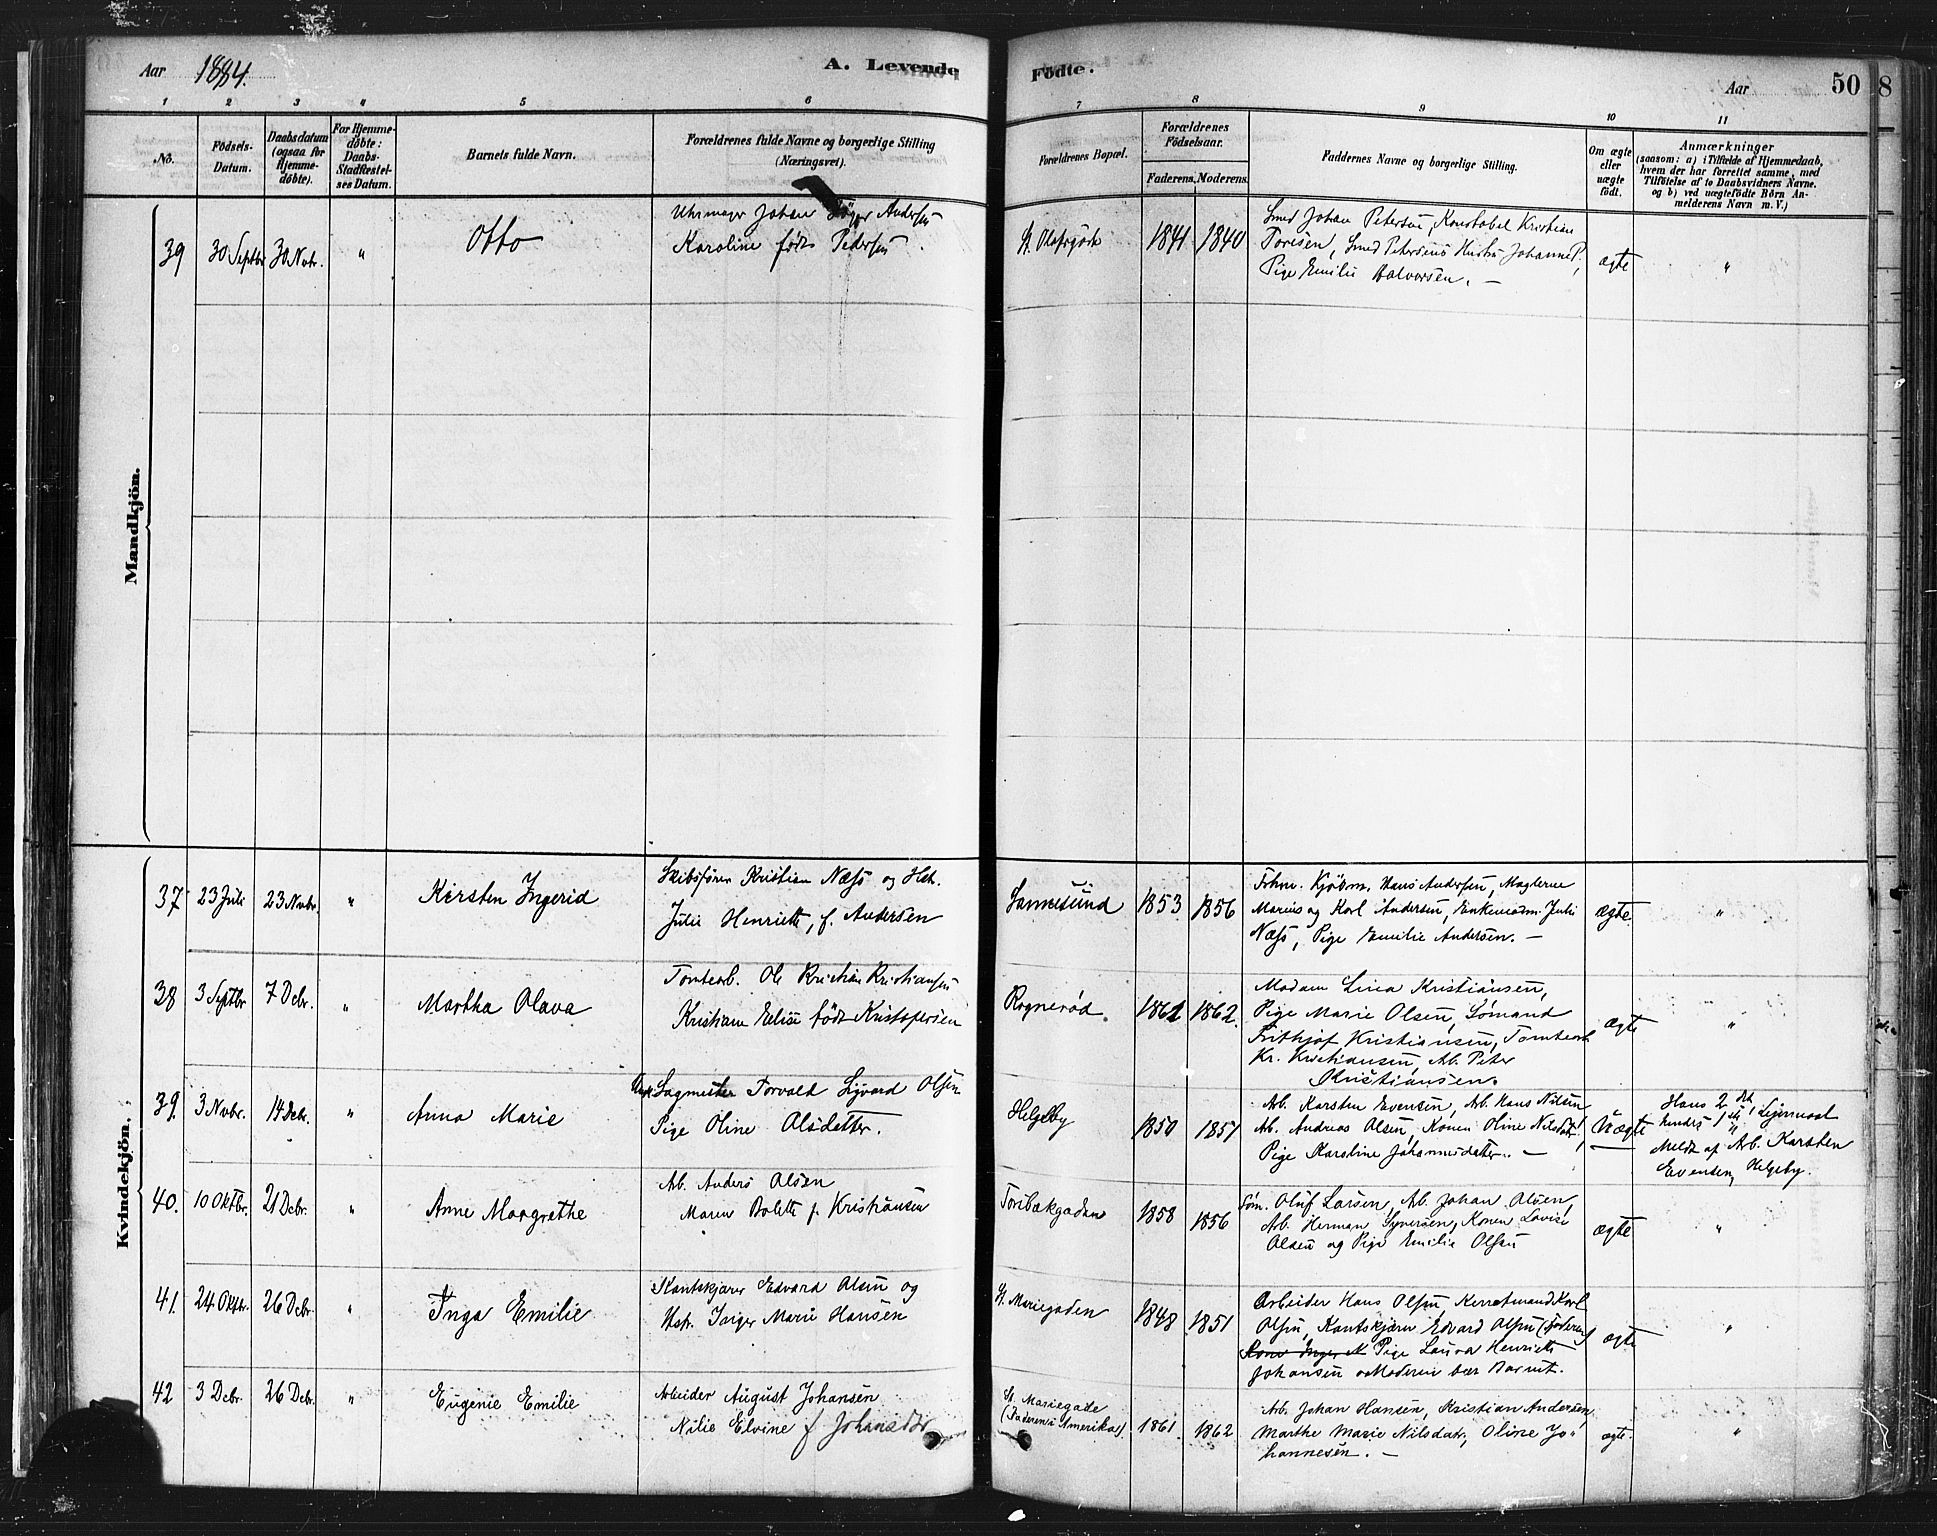 Aar 1884.
A. Levende
Födte.
Aar
50
8
1 2 3 4 5 6 7 8 9 10 11
No.
Födsels-
Datum.
Daabsdatum
(ogsaa for
Hjemme-
döbte).
For Hjemme-
döbte:
Daabs-
Stadfæstel-
ses Datum.
Barnets fulde Navn.
Forældrenes fulde Navne og borgerlige Stilling
(Næringsvei).
Forældrenes Bopæl.
Forældrenes
Födselsaar.
Faderens. Moderens.
Faddernes Navne og borgerlige Stilling.
Om ægte
eller
uægte
födt.
Anmærkninger
(saasom: a) i Tilfælde af Hjemmedaab,
hvem der har forrettet samme, med
Tilföielse af to Daabsvidners Navne.
og b) ved uægtefödte Börn An-
melderens Navn m. V.)
Mandkjön.
39 30 Septbr 30 Nvbr. " Otto
Uhrmager Johan Andersen
Karoline født Pedersen
St. Olafsgade 1841 1840
Smed Johan Petersen, Konstabel Kristian
Toresen, Smed Petersens Hustru Johanne P.,
Pige Emilie Halvorsen. —
ægte "
Kvindekjön.
37 23 Juli 23 Nvbr. " Kirsten Ingerid
Skibsfører Kristian Næss og Hst.
Julie Henriette, f. Andersen
Sannesund 1853 1856
Frkn. Kjöbm. Hans Andersen, Maglerne
Marius og Karl Andersen, Enkemadm. Juli
Næss, Pige Emilie Andersen. —
ægte "
38 3 Septbr 7 Dcbr. " Martha Olava
Tomtearb. Ole Kristian Kristiansen
Kristiane Elise født Kristofersen
Rognerød. 1861 1862.
Madam Lina Kristiansen,
Pige Marie Olsen, Sømand
Frithjof Kristiansen, Tomtearb
Kr. Kristiansen, Ab. Peter
Kristiansen.
ægte "
39. 3 Nvbr. 14 Dcbr. " Anna Marie
Ungk. Sagmester Torvald Sigvard Olsen
Pige Oline Olsdatter.
Helgeby 1850 1851
Ab. Karsten Evensen, Ab. Hans Nilsen
Ab. Andreas Olsen, Konen Oline Nilsdtr.
Pige Karoline Johannesdatter. —
Uægte
Hans 2det,
hendes 1ste Leiermaal
Meldt af Ab. Karsten
Evensen, Helgeby.
40. 10 Oktbr. 21 Dcbr. " Anne Margrethe
Ab. Anders Olsen
Maren Bolette f. Kristiansen
Torsbækgaden 1858 1856
Søm. Oluf Larsen, Ab. Johan Olsen,
Ab. Herman Syversen, Konen Lovise
Olsen og Pige Emilie Olsen
ægte "
41. 24 Oktbr. 26 Dcbr. " Inga Emilie
Kantskjærer Edvard Olsen og
Hstr. Inger Marie Hansen
St. Mariegaden 1848 1851
Arbeider Hans Olsen, Karl
Olsen, Kantskjærer Edvard Olsen (Faderen)
Kone Inger M Pige Laura Henriette
Johansen Moderen bar Barnet.
ægte "
42 3 Dcbr. 26 Dcbr. " Eugenie Emilie
Arbeider August Johansen
Nilie Elvine f Johnsdtr
St. Mariegade
(Faderen i Amerika). 1861. 1862
Ab. Johan Hansen, Kristian Andersen,
Marthe Marie Nilsdatr, Oline Jo-
hannesen. —
ægte. "